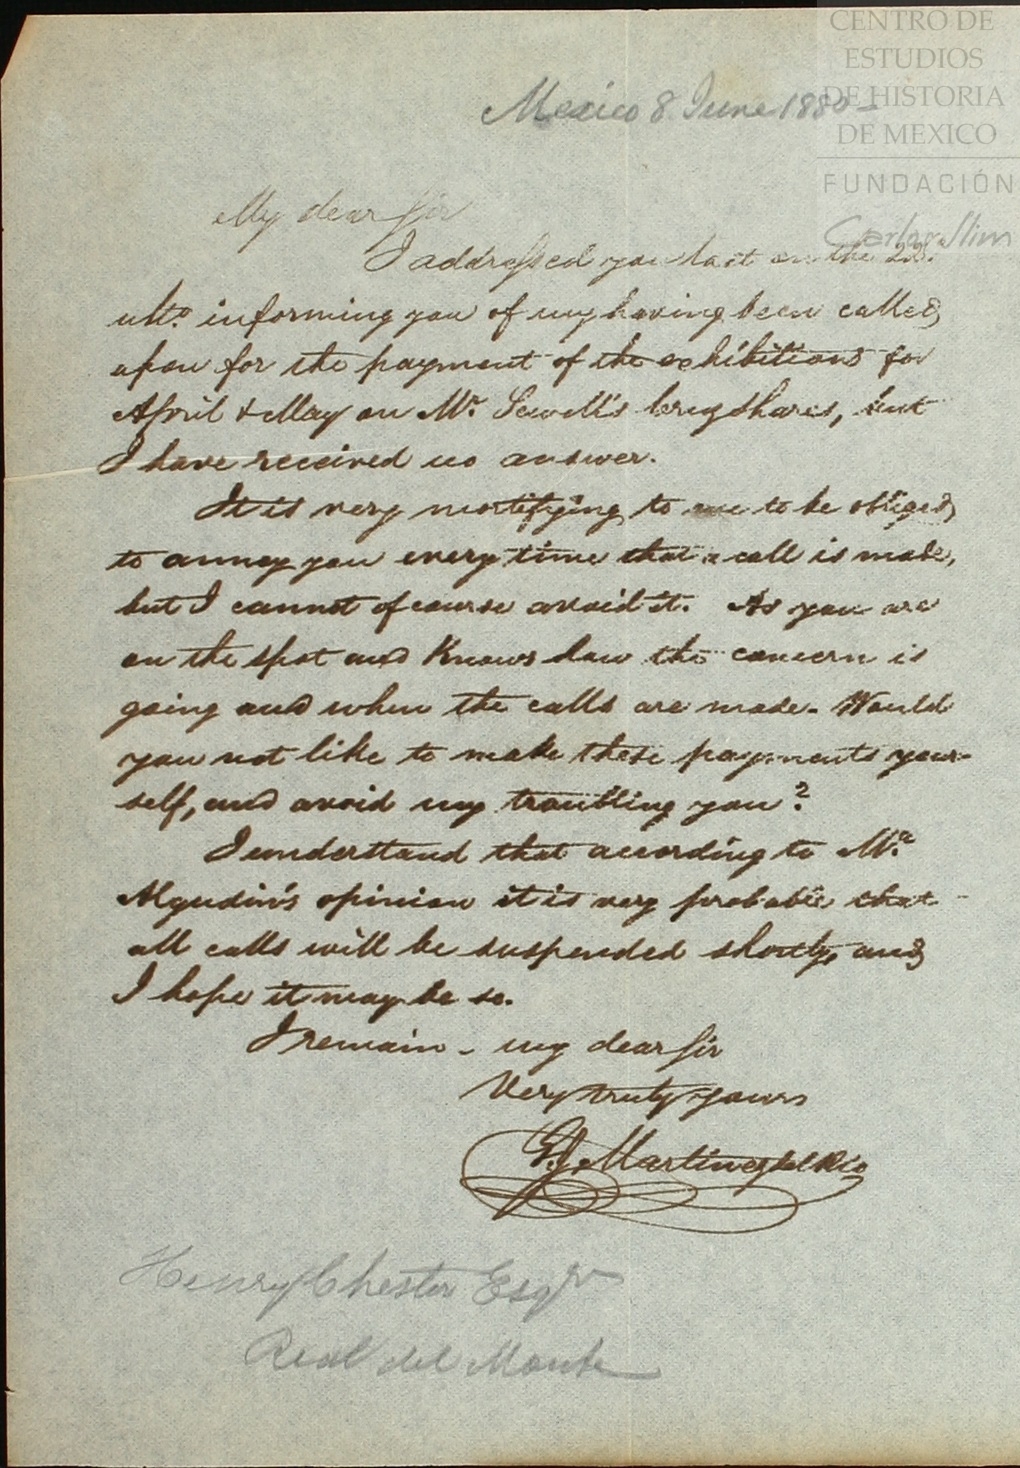 CENTRO DE
ESTUDIOS
DE HISTORIA
DE MEXICO
FUNDACIÓN
Carlos Slim
Mexico 8 June 1880
My dear Sir
I addressed you last on the 22.
ulto. informing you of my having been called
upon for the payment of the exhibitions for
April & May on Mr. Sewell's shares, but
I have received no answer.
It is very mortifying to me to be obliged
to annoy you every time that a call is made,
but I cannot of course avoid it. As you are
on the spot and Knows how the concern is
going and when the calls are made. Would
you not like to make these payments your-
self, and avoid my troubling you?
I understand that according to Mr.
opinion it is very probable that
all calls will be suspended shortly, and
I hope it may be so.
I remain - my dear Sir
Very truly yours
Martinez del Rio
Henry Chester Esqr
Real del Monte